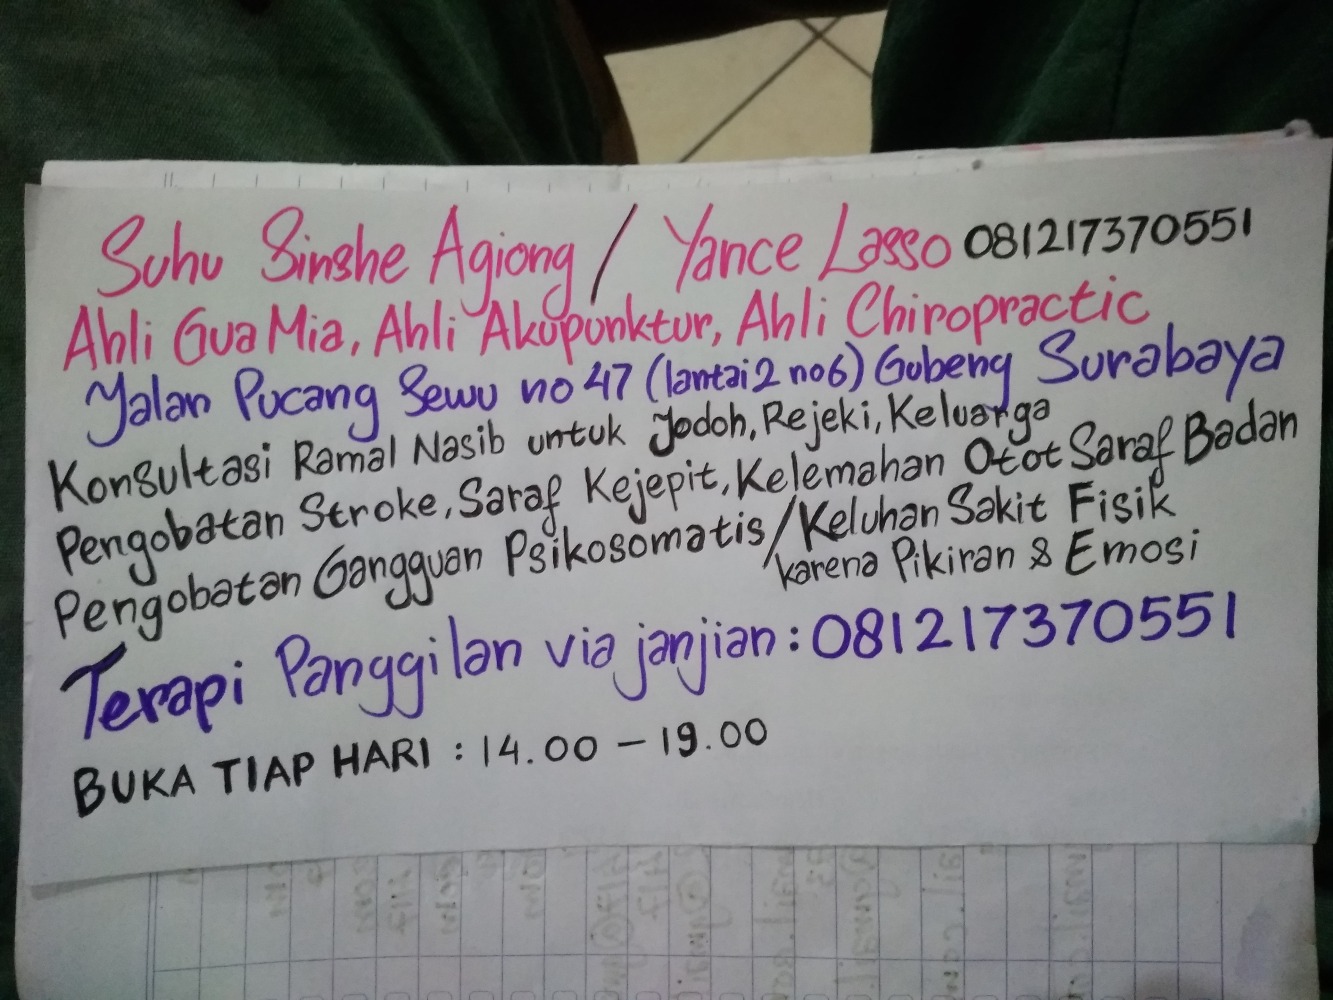 Suhu Sinshe Agiong / Yance Lasso 081217370551
Ahli Gua Mia, Ahli Akupunktur, Ahli Chiropractic
Jalan Pucang Sewu no 47 (lantai 2 no 6) Gubeng Surabaya
Konsultasi Ramal Nasib untuk Jodoh, Rejeki, Keluarga
Pengobatan Stroke, Saraf Kejepit, Kelemahan Otot Saraf Badan
Pengobatan Gangguan Psikosomatis / Keluhan Sakit Fisik
karena Pikiran & Emosi
Terapi Panggilan via janjian : 081217370551
BUKA TIAP HARI : 14.00 – 19.00